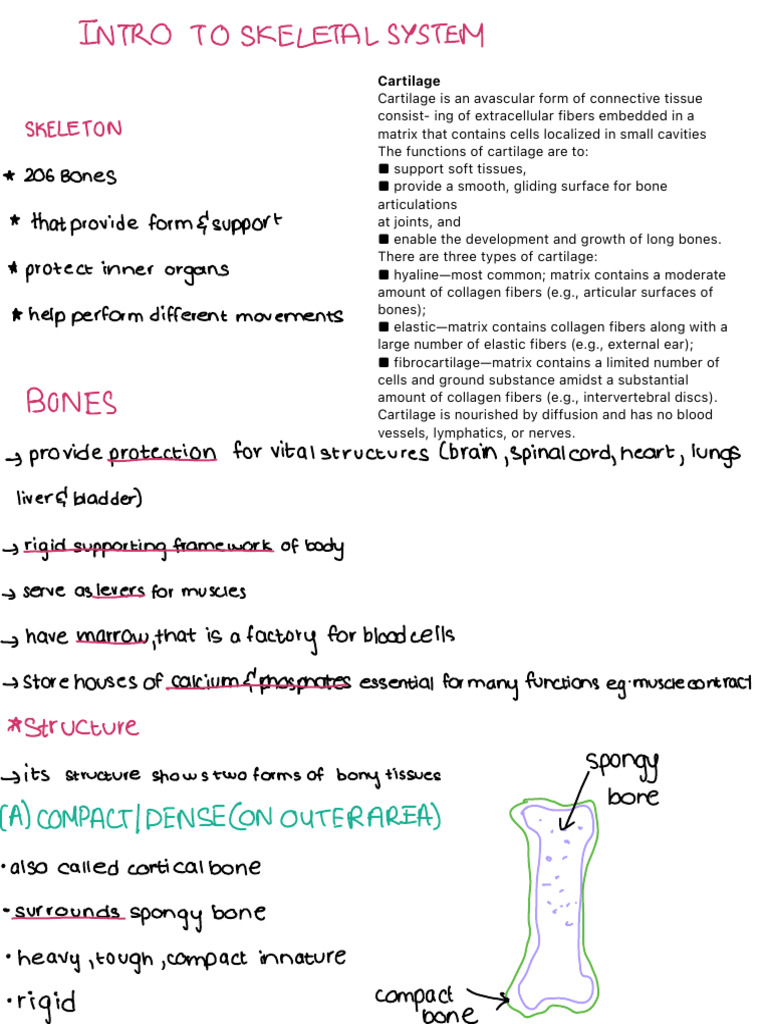 INTRO TO SKELETAL SYSTEM
SKELETON
* 206 Bones
* that provide form & support
* protect inner organs
* help perform different movements
Cartilage
Cartilage is an avascular form of connective tissue
consist- ing of extracellular fibers embedded in a
matrix that contains cells localized in small cavities
The functions of cartilage are to:
■ support soft tissues,
■ provide a smooth, gliding surface for bone
articulations
at joints, and
■ enable the development and growth of long bones.
There are three types of cartilage:
■ hyaline—most common; matrix contains a moderate
amount of collagen fibers (e.g., articular surfaces of
bones);
■ elastic—matrix contains collagen fibers along with a
large number of elastic fibers (e.g., external ear);
■ fibrocartilage—matrix contains a limited number of
cells and ground substance amidst a substantial
amount of collagen fibers (e.g., intervertebral discs).
Cartilage is nourished by diffusion and has no blood
vessels, lymphatics, or nerves.
BONES
→ provide protection for vital structures (brain, spinal cord, heart, lungs
liver & bladder)
→ rigid supporting framework of body
→ serve as levers for muscles
→ have marrow, that is a factory for blood cells
→ store houses of calcium & phosphates essential for many functions eg. muscle contract
*Structure
→ its structure shows two forms of bony tissues
(A) COMPACT/DENSE (ON OUTER AREA)
• also called cortical bone
• surrounds spongy bone
• heavy, tough, compact in nature
• rigid
spongy
bore
compact
bone